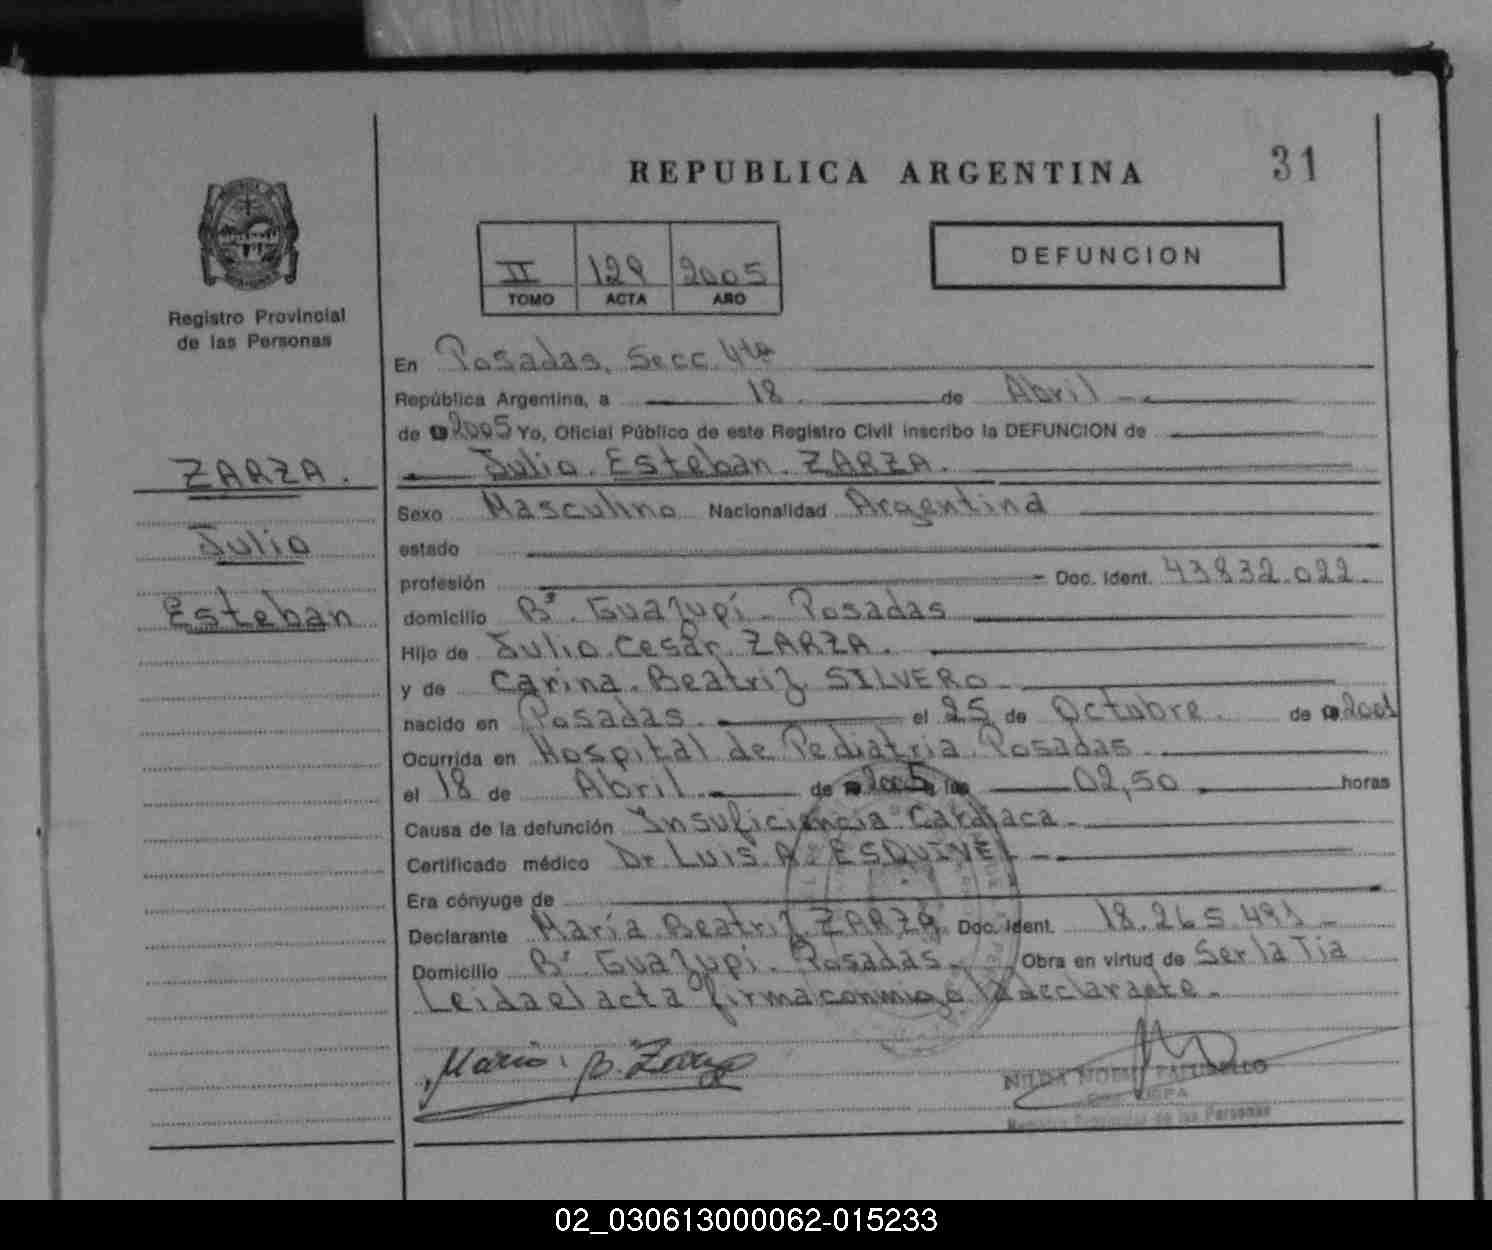 REPUBLICA ARGENTINA
31
II 129 2005
TOMO ACTA AÑO
DEFUNCION
Registro Provincial
de las Personas
ZARZA.
Julio
Esteban
En Posadas, Secc. 4ta
República Argentina, a 18 de Abril
de 2005 Yo, Oficial Público de este Registro Civil inscribo la DEFUNCION de
Julio Esteban ZARZA.
Sexo Masculino Nacionalidad Argentina
estado
profesión Doc. Ident. 43832.022.
domicilio B° Guazupí - Posadas
Hijo de Julio Cesar ZARZA.
y de Carina Beatriz SILVERO
nacido en Posadas. el 25 de Octubre. de 2001
Ocurrida en Hospital de Pediatria Posadas
el 18 de Abril de 2005 a las 02,50 horas
Causa de la defunción Insuficiencia Cardiaca
Certificado médico Dr. LUIS A. ESQUIVEL
Era cónyuge de
Declarante María Beatriz ZARZA Doc. Ident. 18.265.491
Domicilio B° Guazupí - Posadas Obra en virtud de Ser la Tia
Leida el acta firma conmigo la declarante.
Maria B. Zarza
NILDA NOEMI
Registro Provincial de las Personas
02_030613000062-015233